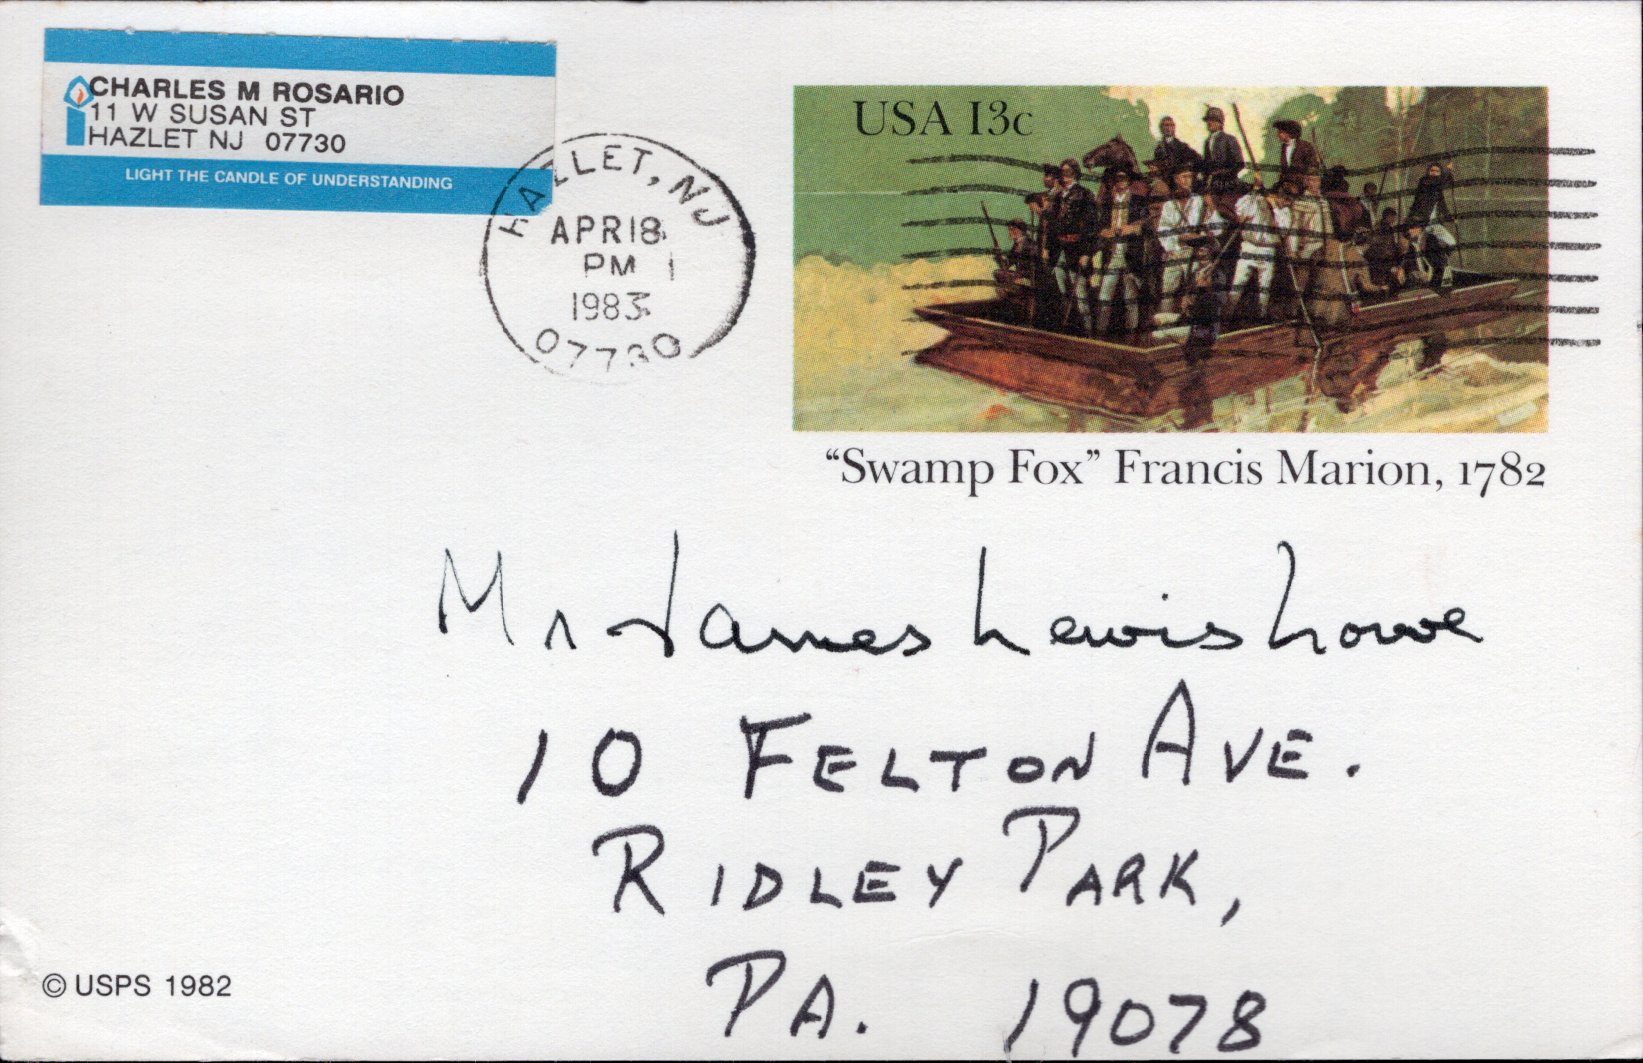 CHARLES M ROSARIO
11 W SUSAN ST
HAZLET NJ 07730
LIGHT THE CANDLE OF UNDERSTANDING
HAZLET, NJ
APR 18
PM
1983
07730
USA 13c
“Swamp Fox” Francis Marion, 1782
Mr James Lewis Lowe
10 FELTON AVE.
RIDLEY PARK,
PA. 19078
© USPS 1982